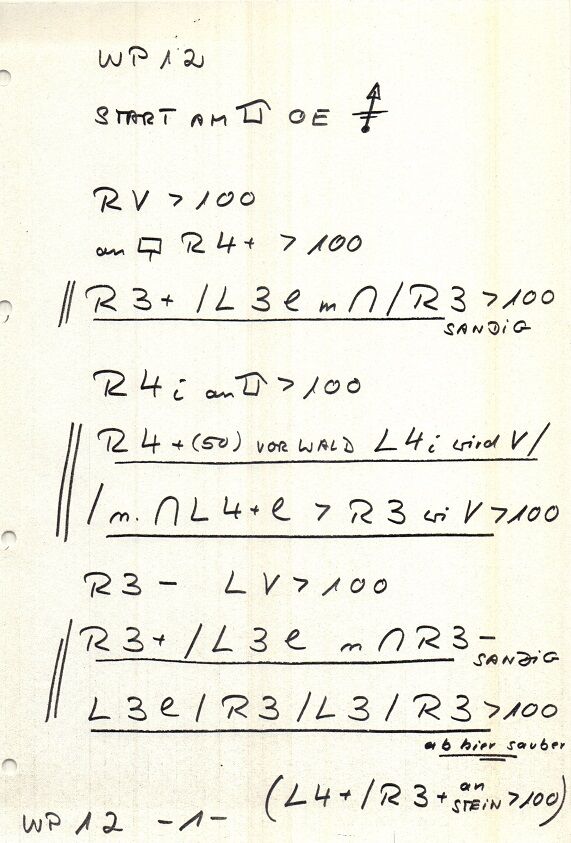 WP 12
START AM OE
RV > 100
an R4+ > 100
R3+ / L3e m ∩ / R3 > 100
SANDIG
R4i an > 100
R4+(50) VOR WALD L4i wird V/
/ n. ∩ L4+e > R3 wi V > 100
R3- LV > 100
R3+ / L3e m ∩ R3-
SANDIG
L3e / R3 / L3 / R3 > 100
ab hier sauber
(L4+ / R3+ an STEIN > 100)
WP 12 -1-